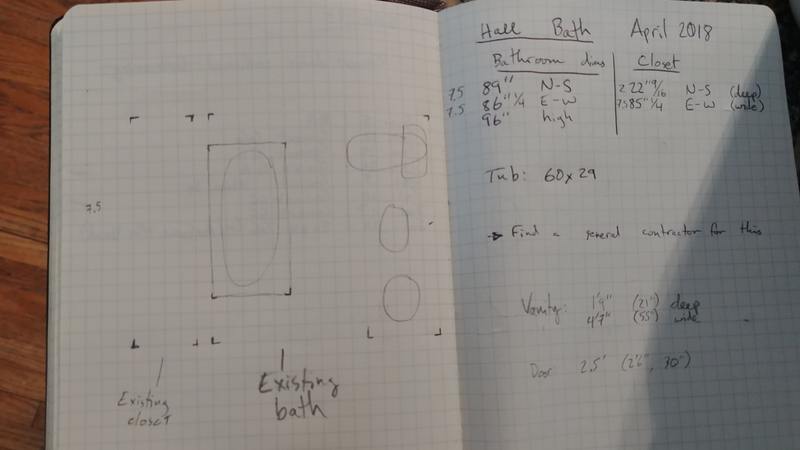 7.5
Existing
closet
Existing
bath
Hall Bath April 2018
Bathroom dims Closet
7.5 89" N-S
7.5 86" 1/4 E-W
96" high
2 22" 9/16 N-S (deep)
7.5 85" 1/4 E-W (wide)
Tub: 60x29
→ Find a general contractor for this
Vanity: 1'9" (21") deep
4'7" (55") wide
Door 2.5' (2'6", 30")